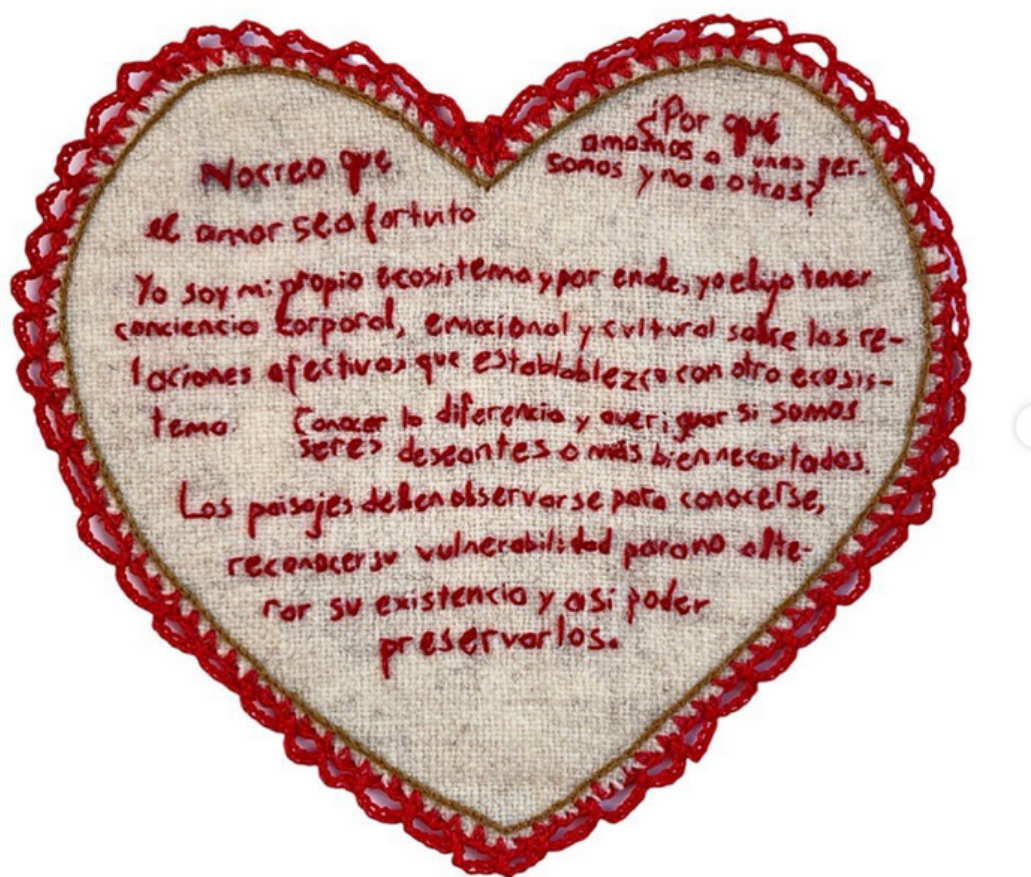 ¿Por qué
amamos a unas per-
sonas y no a otras?
No creo que
el amor sea fortuito
Yo soy mi propio ecosistema y por ende, yo elijo tener
conciencia corporal, emocional y cultural sobre las re-
laciones afectivas que establablezco con otro ecosis-
tema. Conocer la diferencia y averiguar si somos
seres deseantes o más bien necesitados.
Los paisajes deben observarse para conocerse,
reconocer su vulnerabilidad para no alte-
rar su existencia y así poder
preservarlos.